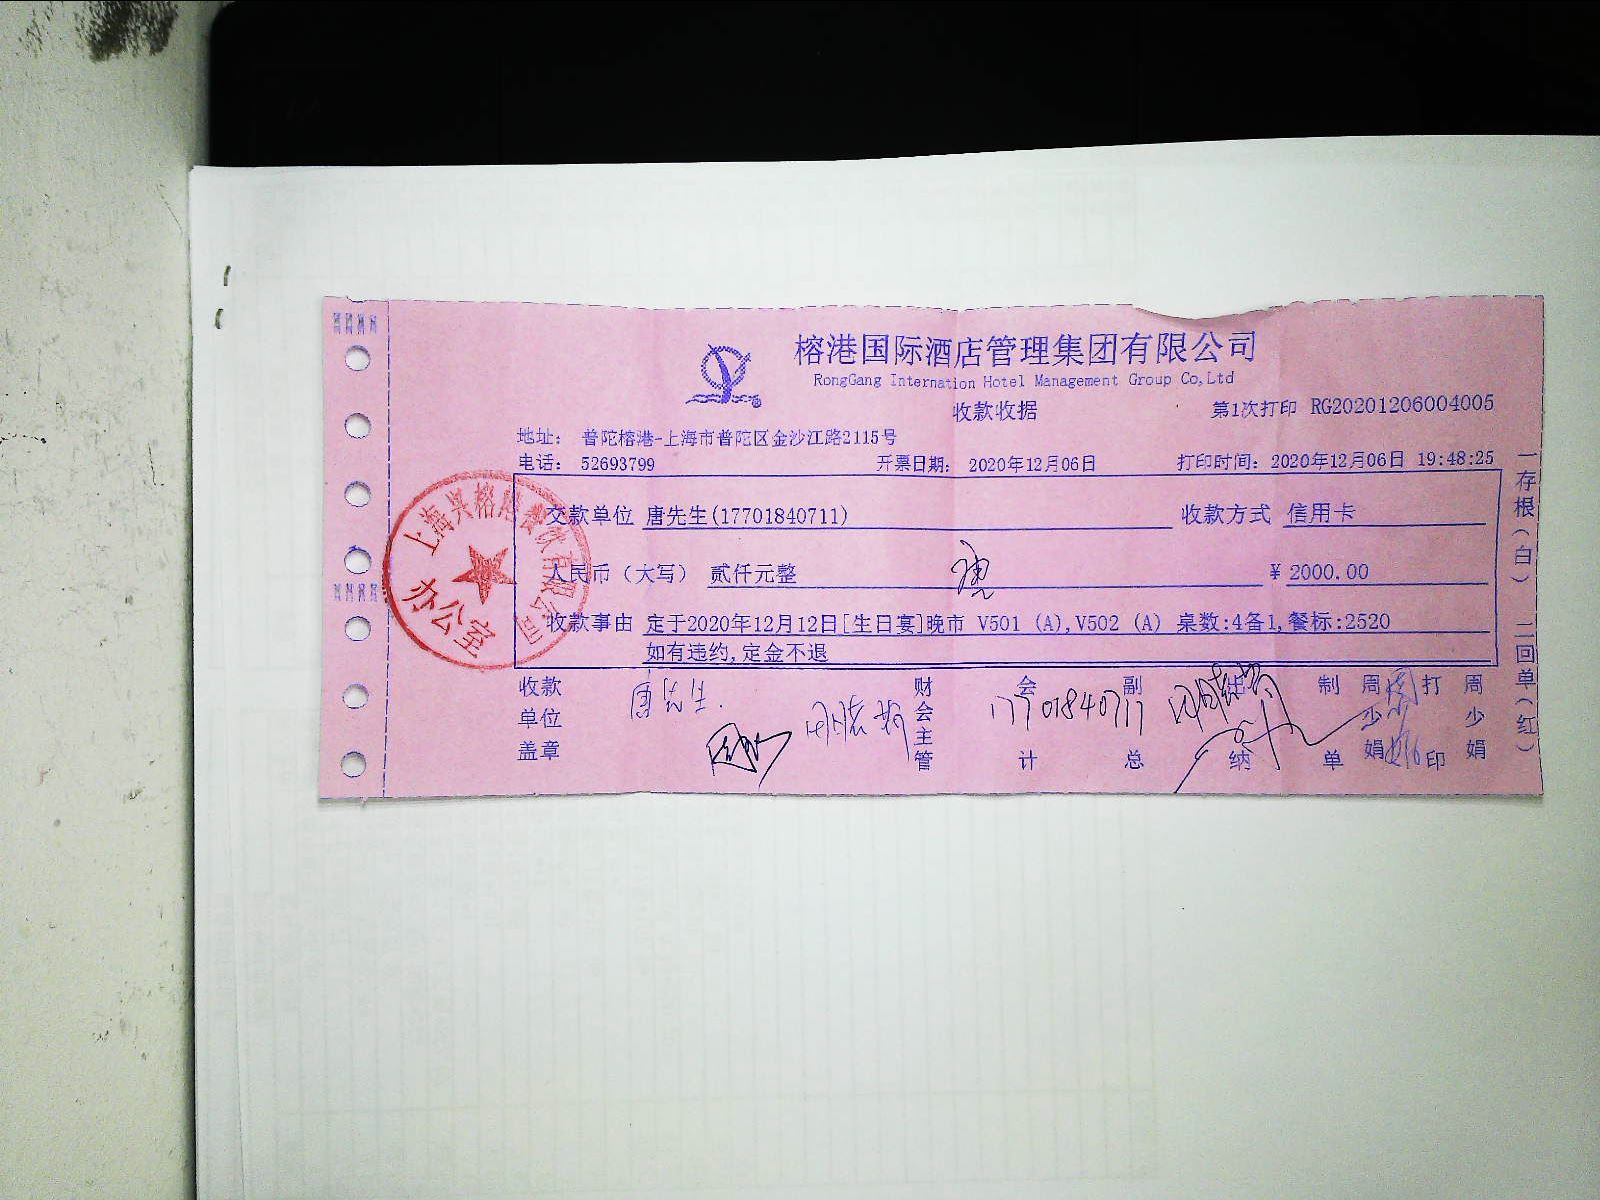 榕港国际酒店管理集团有限公司
RongGang Internation Hotel Management Group Co,Ltd
收款收据
第1次打印 RG20201206004005
地址： 普陀榕港-上海市普陀区金沙江路2115号
电话： 52693799 开票日期： 2020年12月06日 打印时间：2020年12月06日 19:48:25
交款单位 唐先生(17701840711) 收款方式 信用卡
人民币（大写） 贰仟元整 ¥ 2000.00
收款事由 定于2020年12月12日[生日宴]晚市 V501 (A),V502 (A) 桌数:4备1,餐标:2520
如有违约,定金不退
收款单位盖章 唐先生. 财会主管 会计 17701840711 副总 出纳 制单 周少娟 打印 周少娟
一存根(白) 二回单(红)
上海兴榕 有限公司
办公室